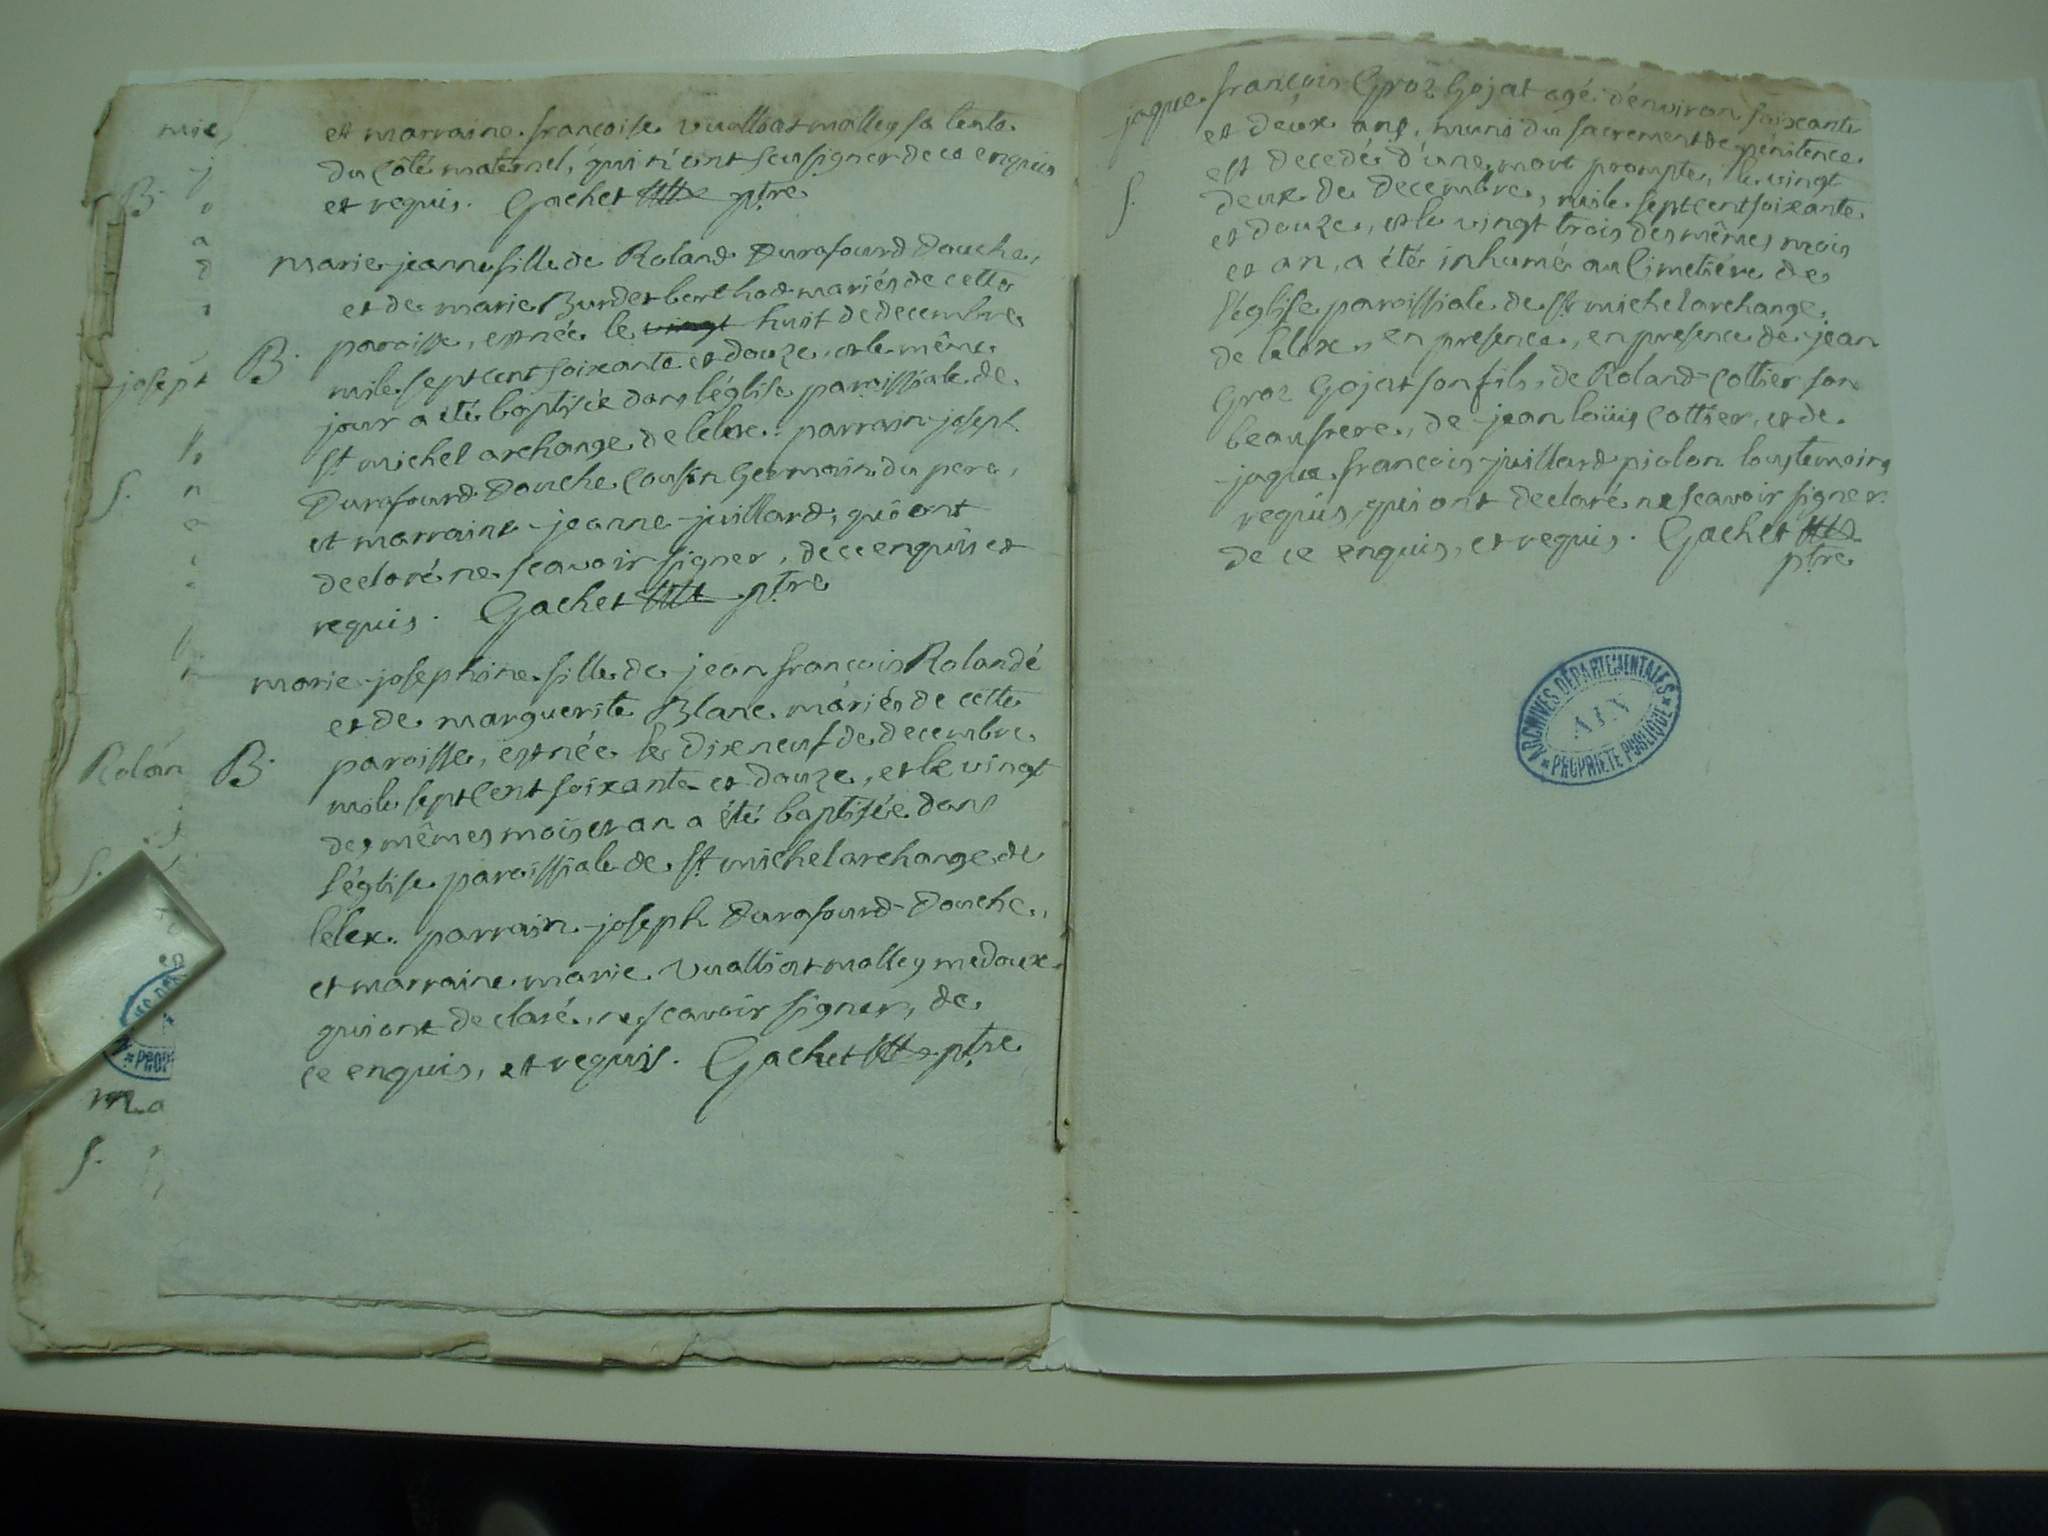 et marraine françoise vualliat malley sa tente
du côté maternel, qui n'ont sçu signer de ce enquis
et requis. Gachet ptre
marie jeanne fille de Roland Durafourd Douche,
et de marie Burdet berthod mariés de cette
B. paroisse, est née le vingt huit de decembre
mile sept cent soixante et douze, et le même
jour a été baptisée dans l'église paroissiale de
St michel archange de lelex. parrain joseph
Durafourd Douche cousin Germain du pere,
et marraine jeanne juillard, qui ont
declaré ne scavoir signer, de ce enquis et
requis. Gachet ptre
marie josephine fille de jean françois Rolandé
et de marguerite Blanc mariés de cette
B. paroisse, est née le dixneuf de decembre
mile sept cent soixante et douze, et le vingt
des mêmes mois et an a été baptisée dans
l'église paroissiale de St michel archange de
lelex. parrain joseph Durafourd Douche,
et marraine marie vualliat malley medoux
qui ont declaré ne scavoir signer, de
ce enquis, et requis. Gachet ptre
mie
B.
joseph
S.
Rolan
S.
ma
S.
jaque françois Groz Gojat agé d'environ soixante
et deux ans, muni du sacrement de pénitence
est decedé d'une mort prompte, le vingt
S. deux de decembre, mile sept cent soixante
et douze, et le vingt trois des mêmes mois
et an, a été inhumé au cimetière de
l'église paroissiale de St michel archange
de lelex, en presence, en presence de jean
Groz Gojat son fils, de Roland Cottier son
beaufrere, de jean loüis Cottier, et de
jaque françois juillard piolon tous temoins
requis, qui ont declaré ne scavoir signer
de ce enquis, et requis. Gachet
ptre
ARCHIVES DÉPARTEMENTALES
AIN
PROPRIÉTÉ PUBLIQUE